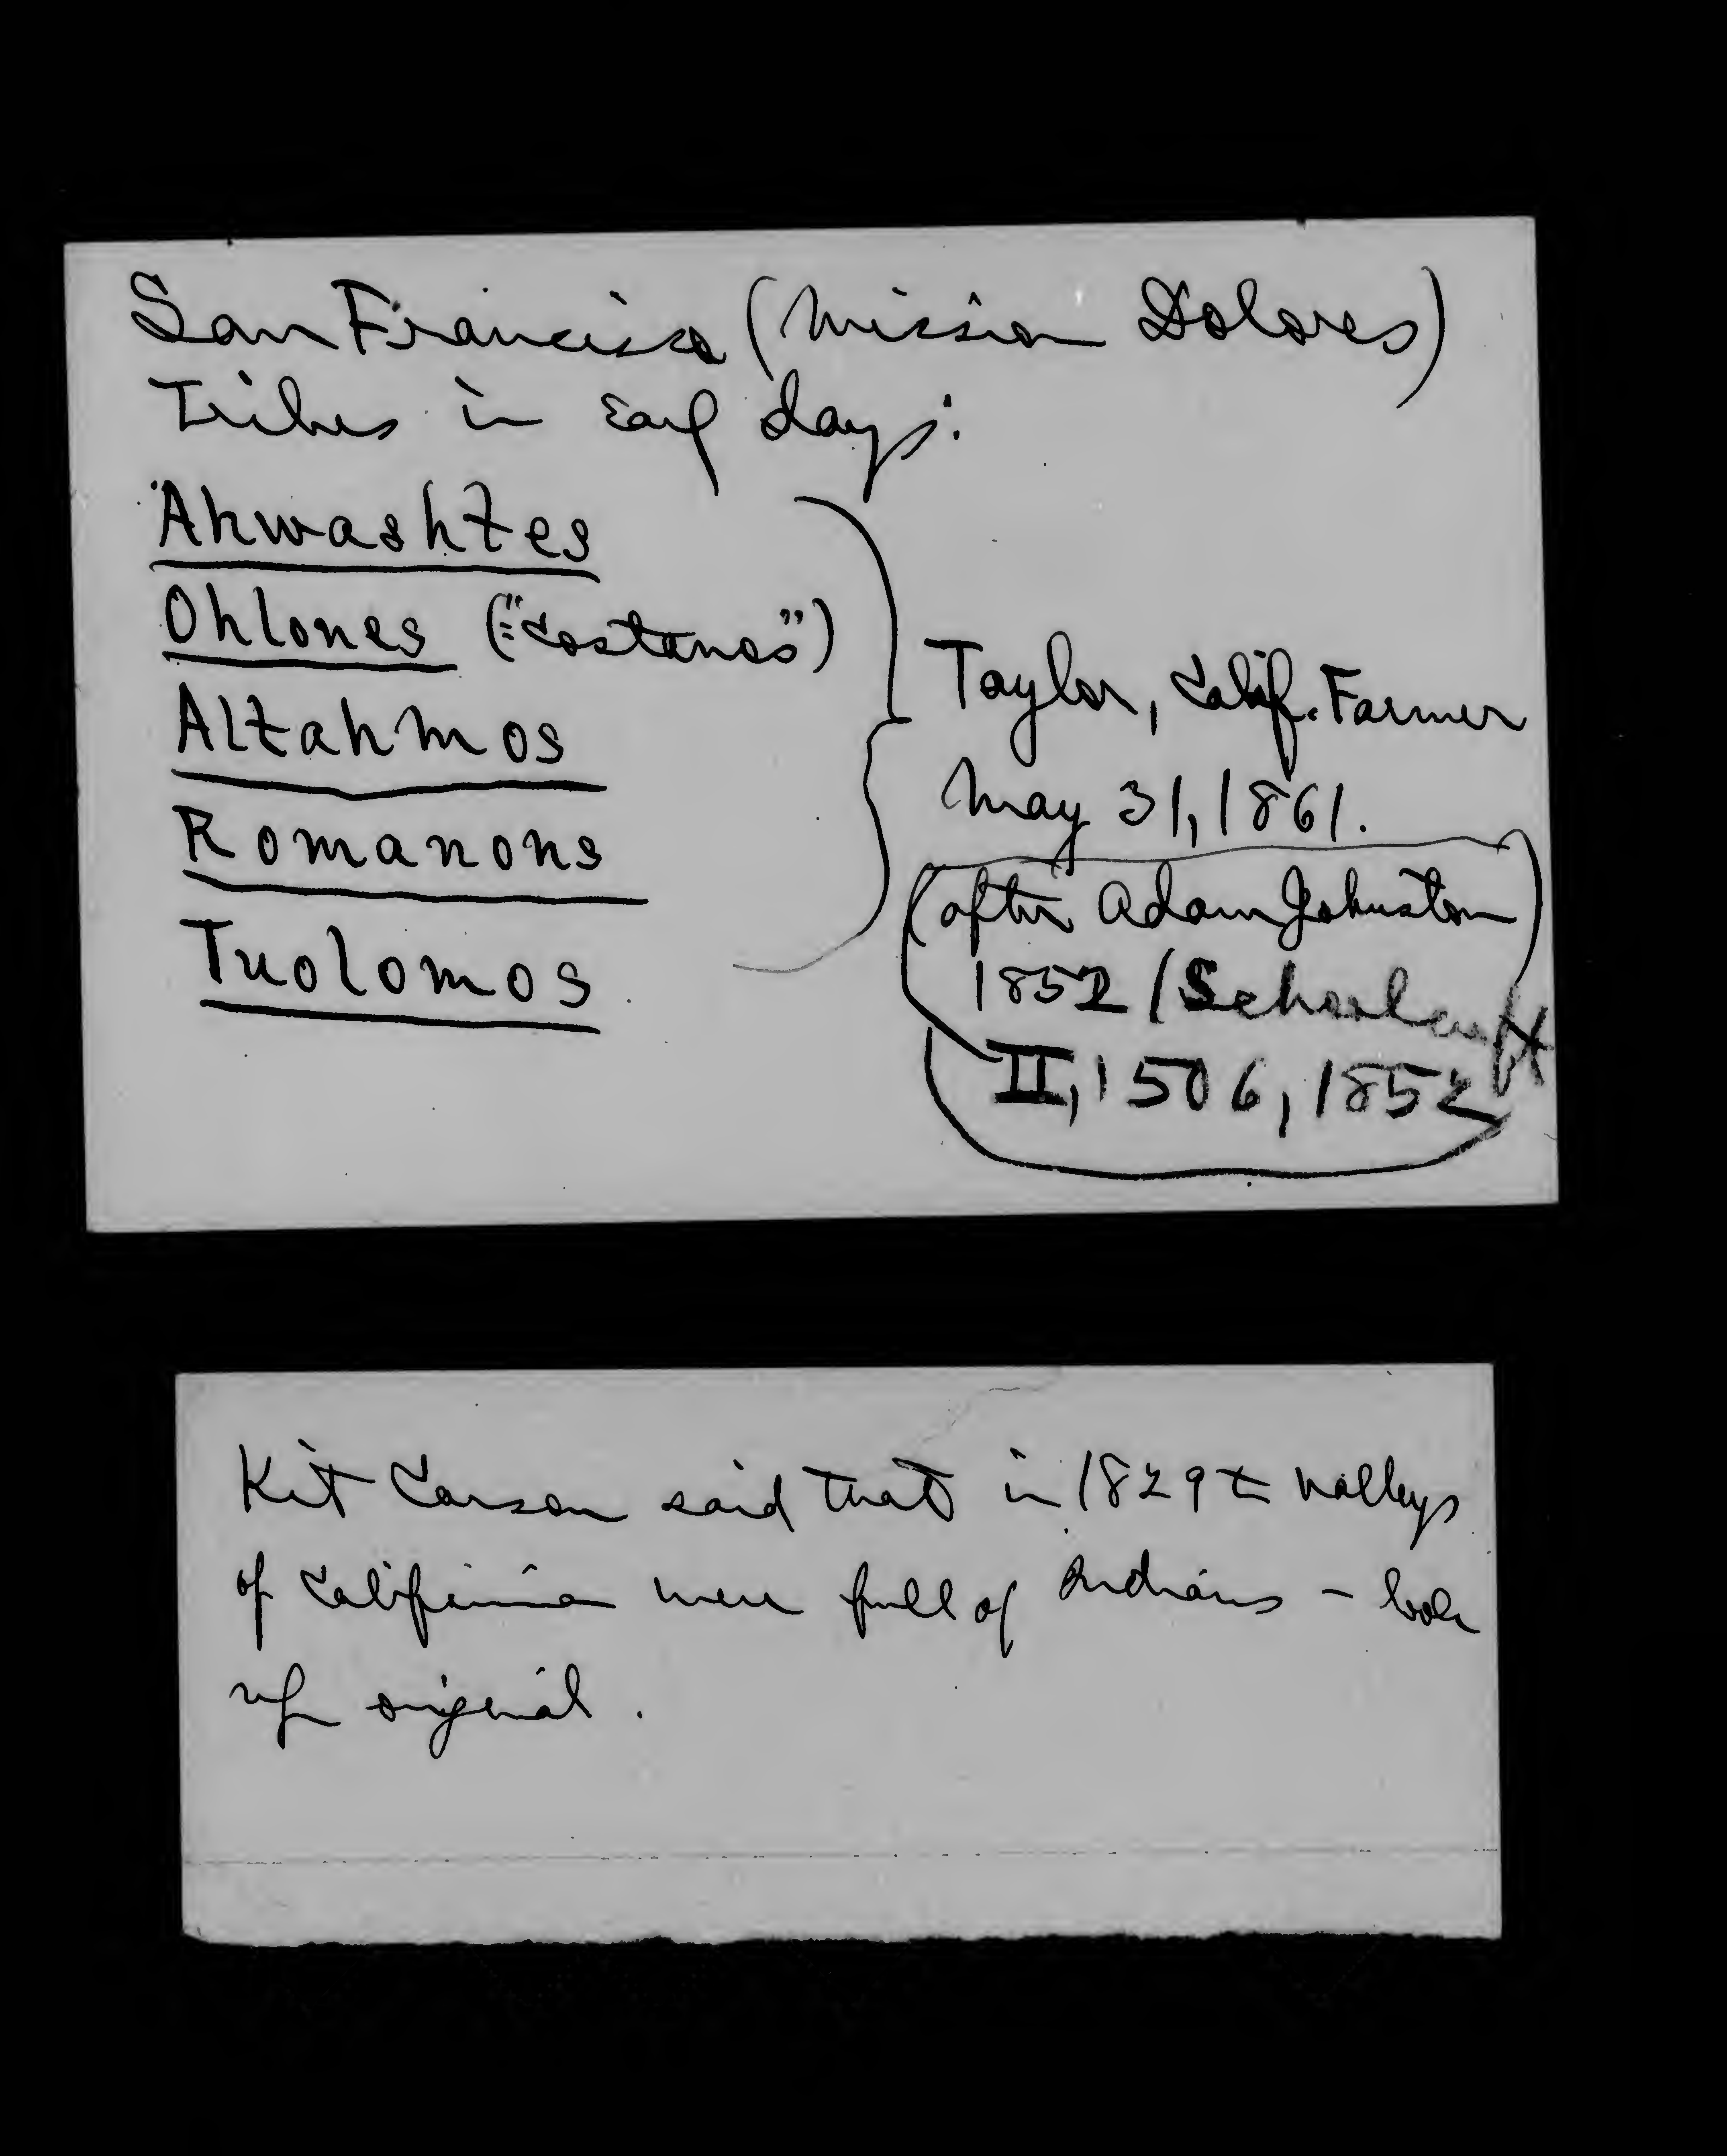 San Francisco (Mission Dolores)
Tribes in Early days:
Ahwashtes
Ohlones (="Costanos")
Altahmos
Romanons
Tuolomos
Taylor, Calif. Farmer
May 31, 1861.
(after Adam Johnston
1852 / Schoolcraft
II, 1506, 1852
Kit Carson said that in 1829 valleys
of California were full of Indians – look
up original.